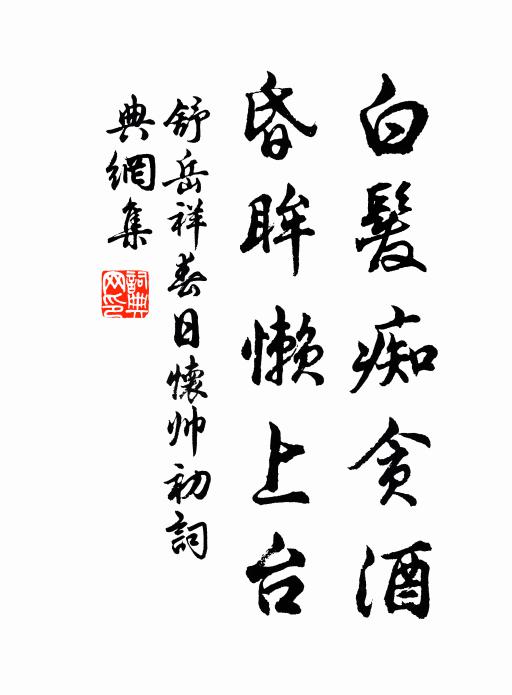 白髮痴貪酒
昏眸懶上台
舒岳祥春日懷帅初詞
典網集
詞典網印